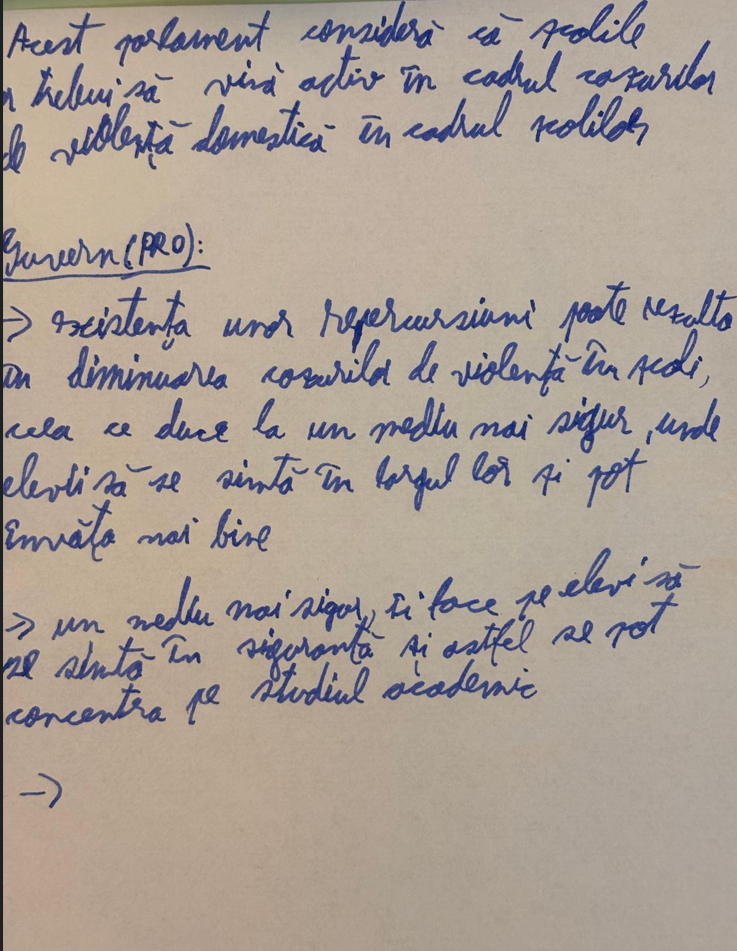 Acest parlament consideră că școlile
ar trebui să activ în cadrul cazurilor
de violență domestică în cadrul școlilor
Guvern (PRO):
→ existența unor repercursiuni poate rezulta
în diminuarea cazurilor de violență în școli,
ceea ce duce la un mediu mai sigur, unde
elevii să se simtă în largul lor și pot
învăța mai bine
→ un mediu mai sigur, îi face pe elevi să
se simtă în siguranță și astfel se pot
concentra pe studiul academic
→